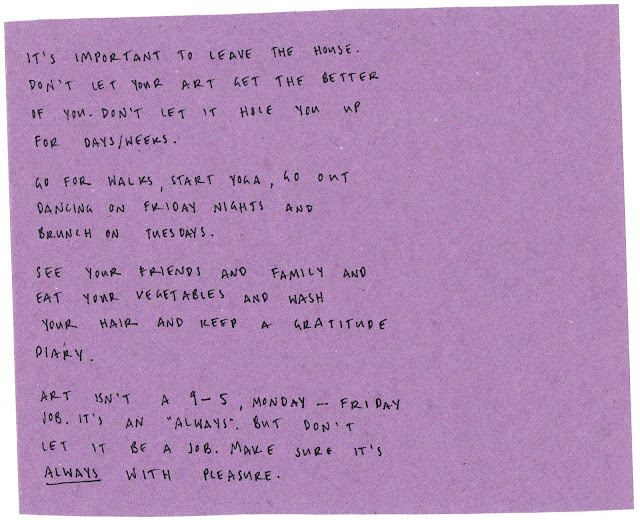 IT'S IMPORTANT TO LEAVE THE HOUSE.
DON'T LET YOUR ART GET THE BETTER
OF YOU. DON'T LET IT HOLE YOU UP
FOR DAYS/WEEKS.
GO FOR WALKS, START YOGA, GO OUT
DANCING ON FRIDAY NIGHTS AND
BRUNCH ON TUESDAYS.
SEE YOUR FRIENDS AND FAMILY AND
EAT YOUR VEGETABLES AND WASH
YOUR HAIR AND KEEP A GRATITUDE
DIARY.
ART ISN'T A 9-5, MONDAY - FRIDAY
JOB. IT'S AN "ALWAYS". BUT DON'T
LET IT BE A JOB. MAKE SURE IT'S
ALWAYS WITH PLEASURE.